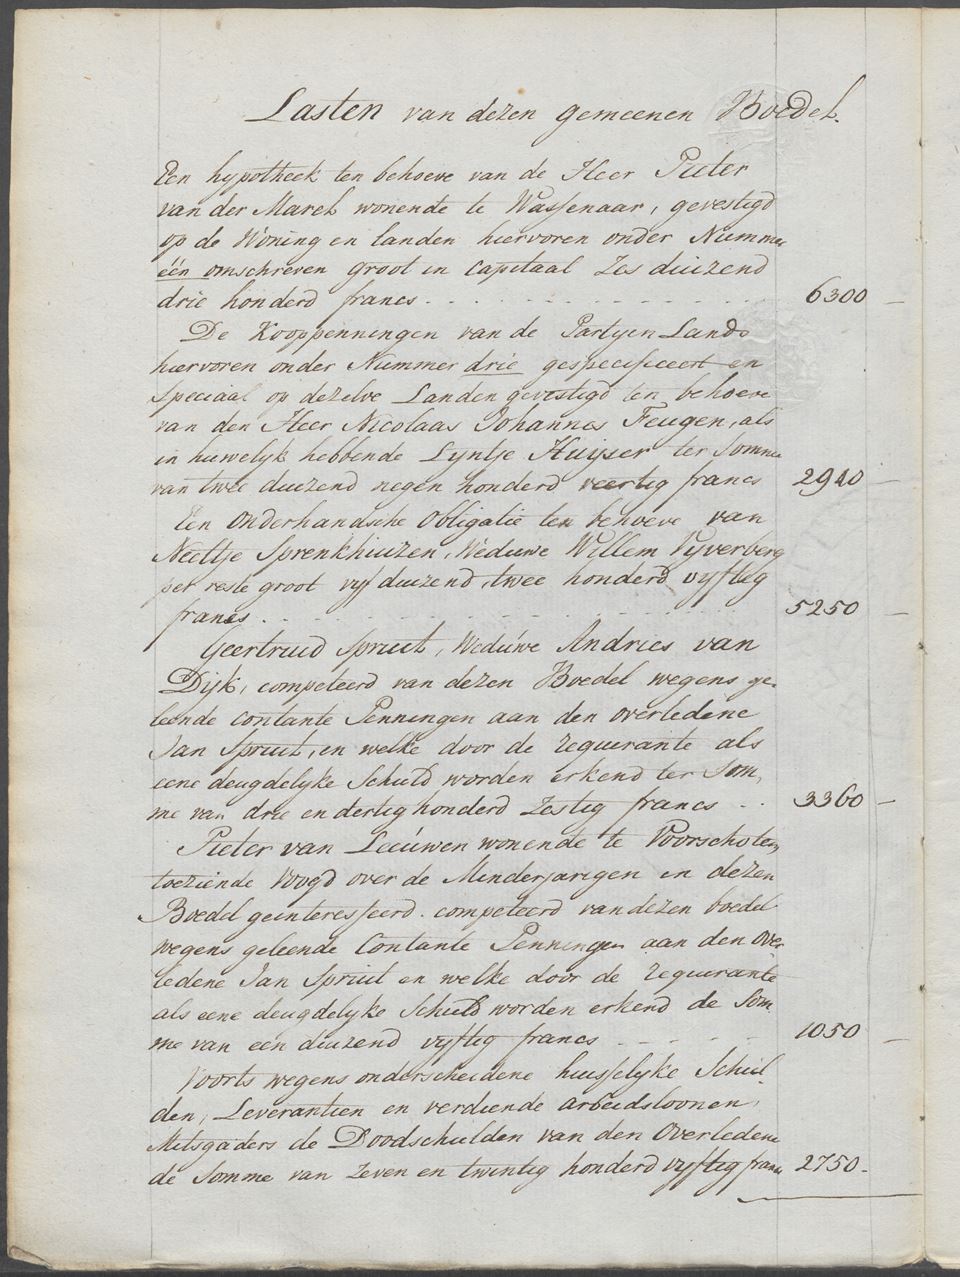 Lasten van dezen gemeenen Boedel.
Een hypotheek ten behoeve van de Heer Pieter
van der Marel wonende te Wassenaar, gevestigd
op de Woning en landen hiervoren onder Nummer
één omschreven groot in Capitaal Zes duizend
drie honderd francs . . . . . . . . . . 6300 –
De Kooppenningen van de Partyen Lands
hiervoren onder Nummer drie gespecificeert en
speciaal op dezelve Landen gevestigd ten behoeve
van den Heer Nicolaas Johannes Feugen, als
in huwelyk hebbende Lyntje Huyser ter Somme
van twee duizend negen honderd veertig francs 2940 –
Een Onderhandsche Obligatie ten behoeve van
Neeltje Sprenkhuizen, Weduwe Willem Vyverberg
per reste groot vyf duizend, twee honderd vyftig
francs . . . . . . . . . . 5250 –
Geertruid Spruit, Weduwe Andries van
Dijk, competeerd van dezen Boedel wegens ge-
leende Contante Penningen aan den overledene
Jan Spruit, en welke door de requirante als
eene deugdelyke Schuld worden erkend ter Som-
me van drie en dertig honderd Zestig francs . . 3360 –
Pieter van Leeuwen wonende te Voorschoten,
toeziende Voogd over de Minderjarigen in dezen
Boedel geinteresseerd. competeerd van dezen boedel
wegens geleende Contante Penningen aan den Over-
ledene Jan Spruit en welke door de requirante
als eene deugdelyke Schuld worden erkend de Som-
me van een duizend vyftig francs . . . . . 1050 –
Voorts wegens onderscheidene huisselyke Schul-
den, Leverantien en verdiende arbeidsloonen,
Mitsgaders de Doodschulden van den Overledene
de Somme van Zeven en twintig honderd vyftig francs 2750 –